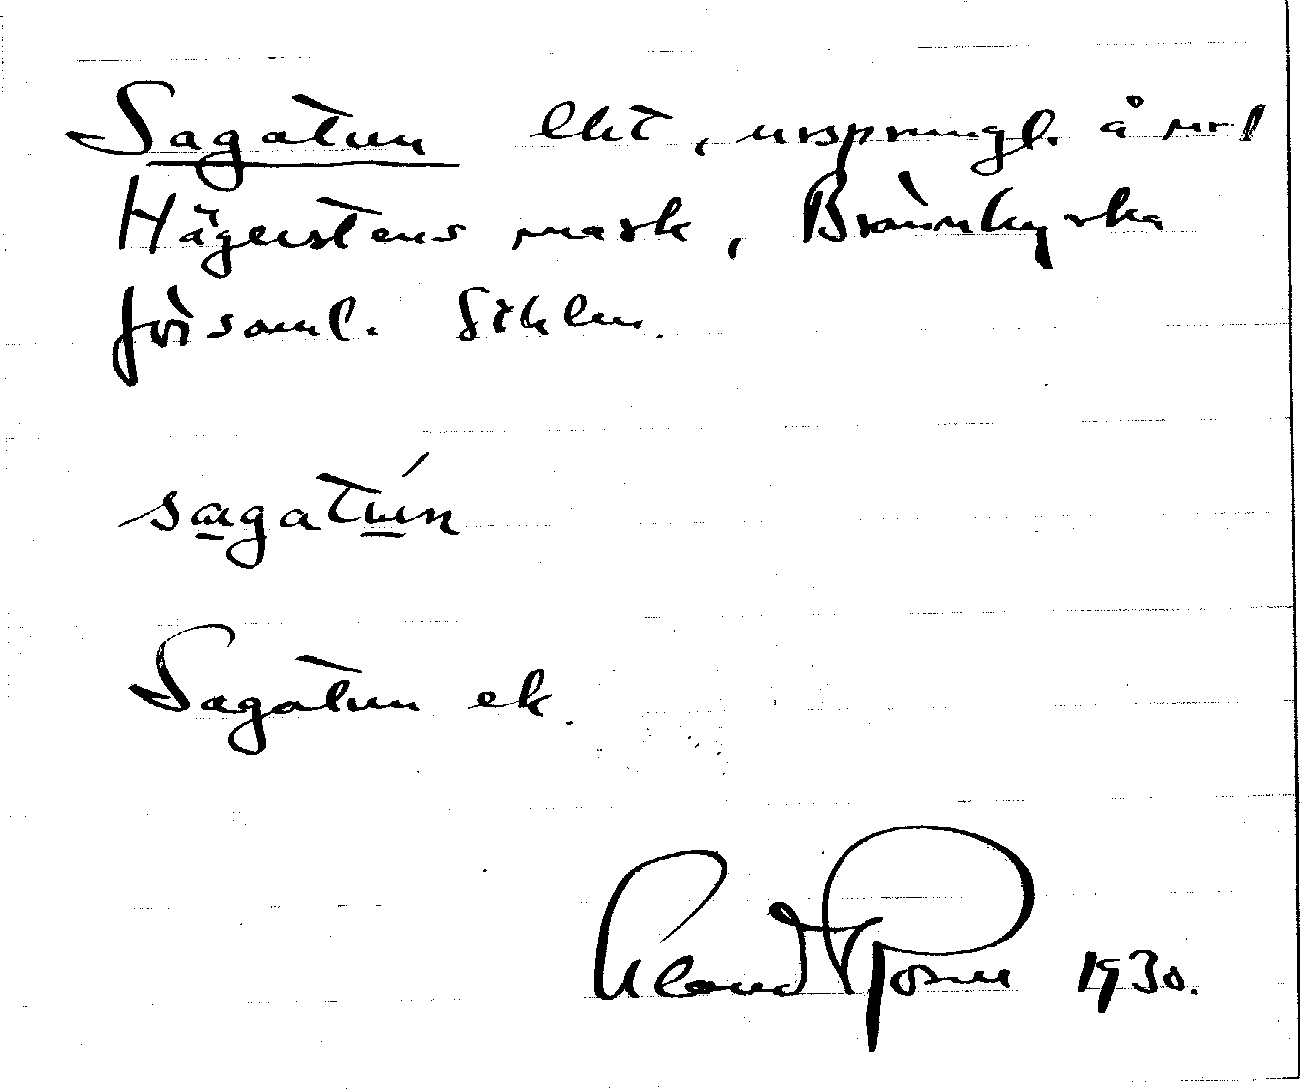 Sagatun lht, ursprungl. å
Hägerstens mark, Brännkyrka
församl. Sthlm.
sagatún
Sagatun ek.
1930.